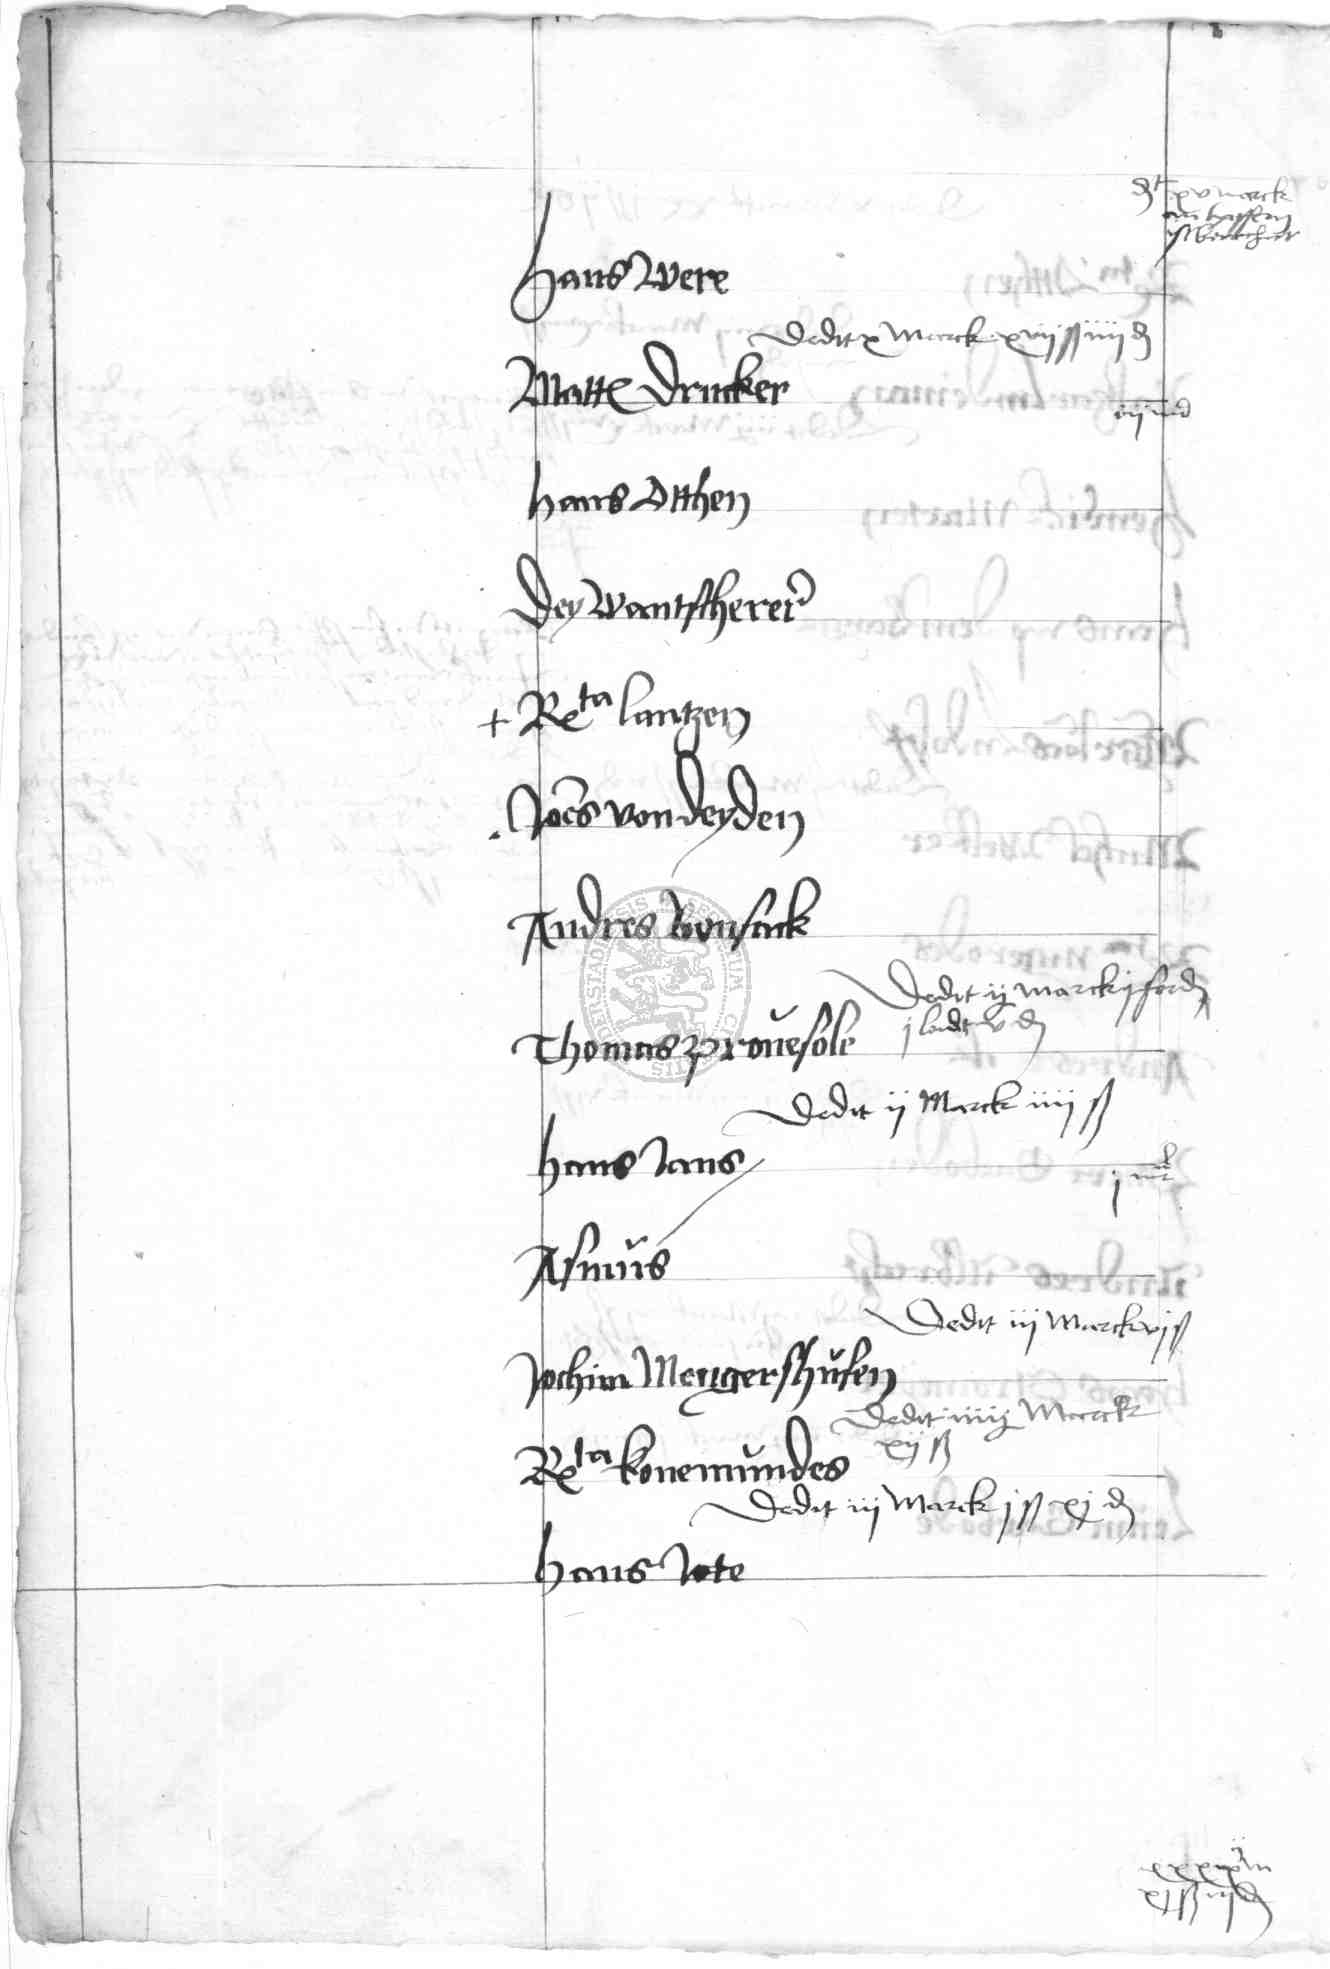 dt xv marck
Hans Were
Dedit x Marck xviij ß iiij d
Matt Drucker
Hans Otthen
Dey Wantscherer
+ Rta luntzen
Joēs von deyden
Andres Bonsack
Dedit ij marck j ferd
j loidt v d
Thomas provesole
Dedit ij Marck iiij ß
Hans Jans
Asmus
Dedit iij Marck vj ß
Jochim Mengershusen
Dedit iiij Marck
xij ß
Rta konemundes
Dedit iij Marck j ß xj d
Hans Jote